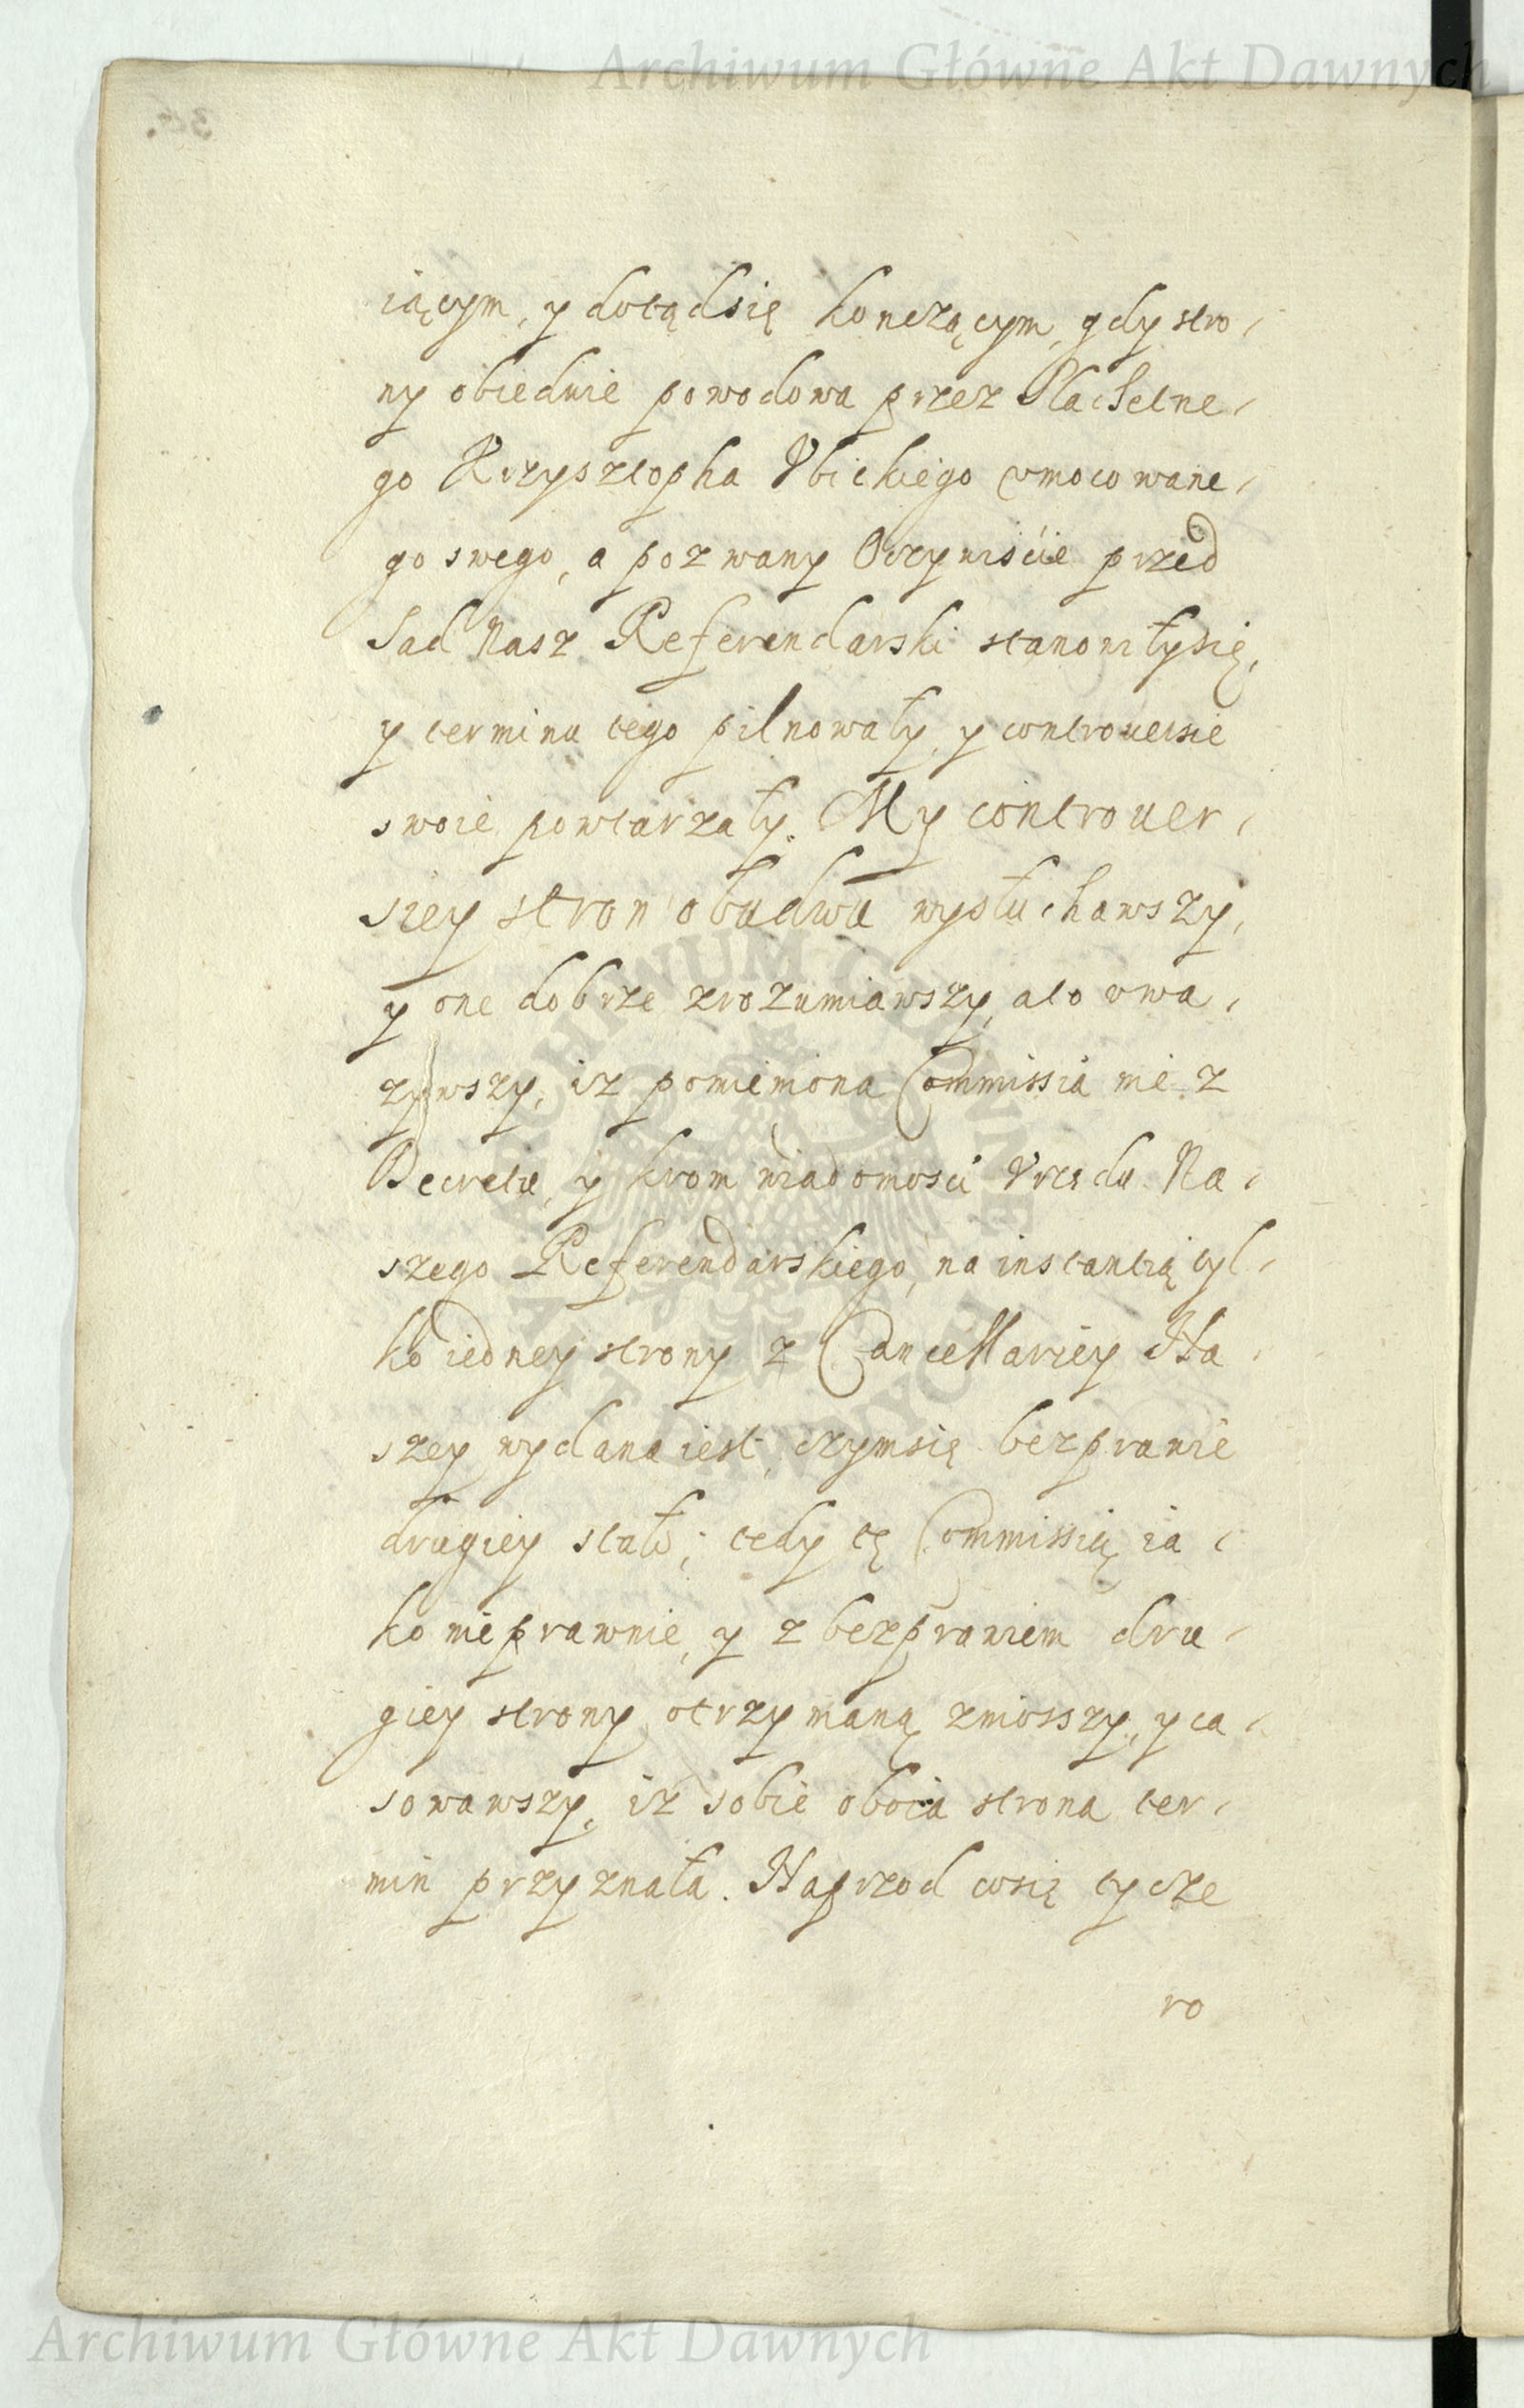 Archiwum Główne Akt Dawnych
iącym, y dotąd się konczącym, gdy stro-
ny obiedwie powodowa przez Slachetne-
go Krzysztopha Vbickiego vmocowane-
go swego, a pozwany Oczywiście przed
Sad Nasz Referendarski stanowiły się,
y terminu tego pilnowały, y controuersie
swoie powtarzały. My controuer-
siey stron obudwu wysłuchawszy,
y one dobrze zrozumiawszy, a to vwa-
zywszy, iz pomieniona Commissia nie z
Decretu, y krom wiadomosci Vrzędu Na-
szego Referendarskiego, na instantią tyl-
ko iedney strony z Cancellariey Na-
szey wydana iest, czym się bezprawie
drugiey stało; tedy tę Commissią ia-
ko nieprawnie, y z bezprawiem dru-
giey strony otrzymaną zniosszy, y ca-
sowawszy, iz sobie oboia strona ter-
min przyznała. Naprzod co się tycze
ro
ARCHIWUM GŁÓWNE AKT DAWNYCH
Archiwum Główne Akt Dawnych